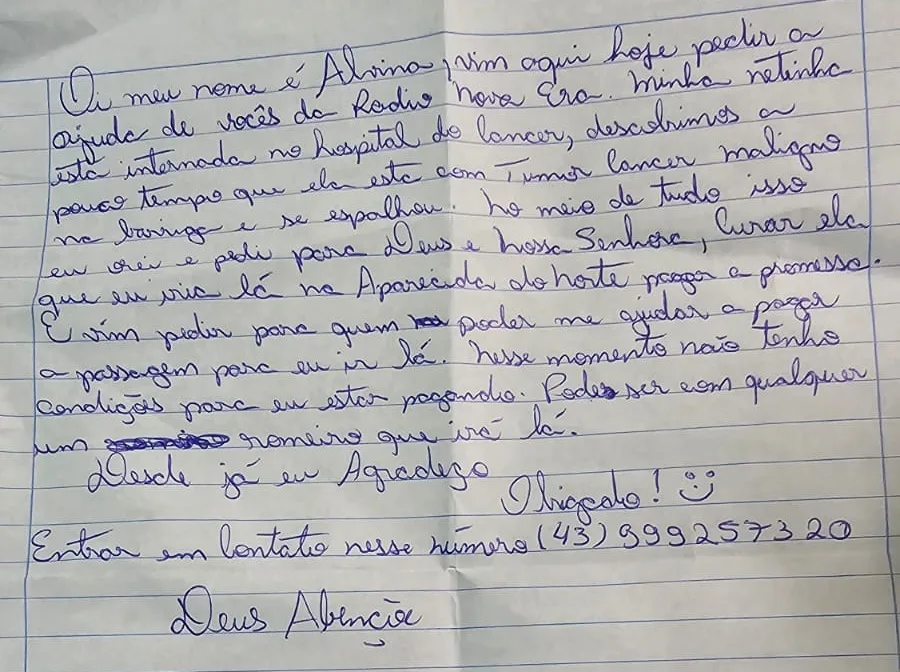 Oi meu nome é Alvina, vim aqui hoje pedir a
ajuda de vocês da Radio Nova Era. Minha netinha
está internada no hospital do Cancer, descobrimos a
pouco tempo que ela esta com Tumor Cancer maligno
na barriga e se espalhou. No meio de tudo isso
eu orei e pedi para Deus e Nossa Senhora, Curar ela
que eu iria lá na Aparecida do Norte pagar a promessa.
E vim pedir para quem poder me ajudar a pagar
a passagem para eu ir lá. Nesse momento não tenho
condições para eu estar pagando. Pode ser com qualquer
um romeiro que irá lá.
Desde já eu Agradeço
Obigado! :)
Entrar em Contato nesse número (43) 999257320
Deus Abençõe